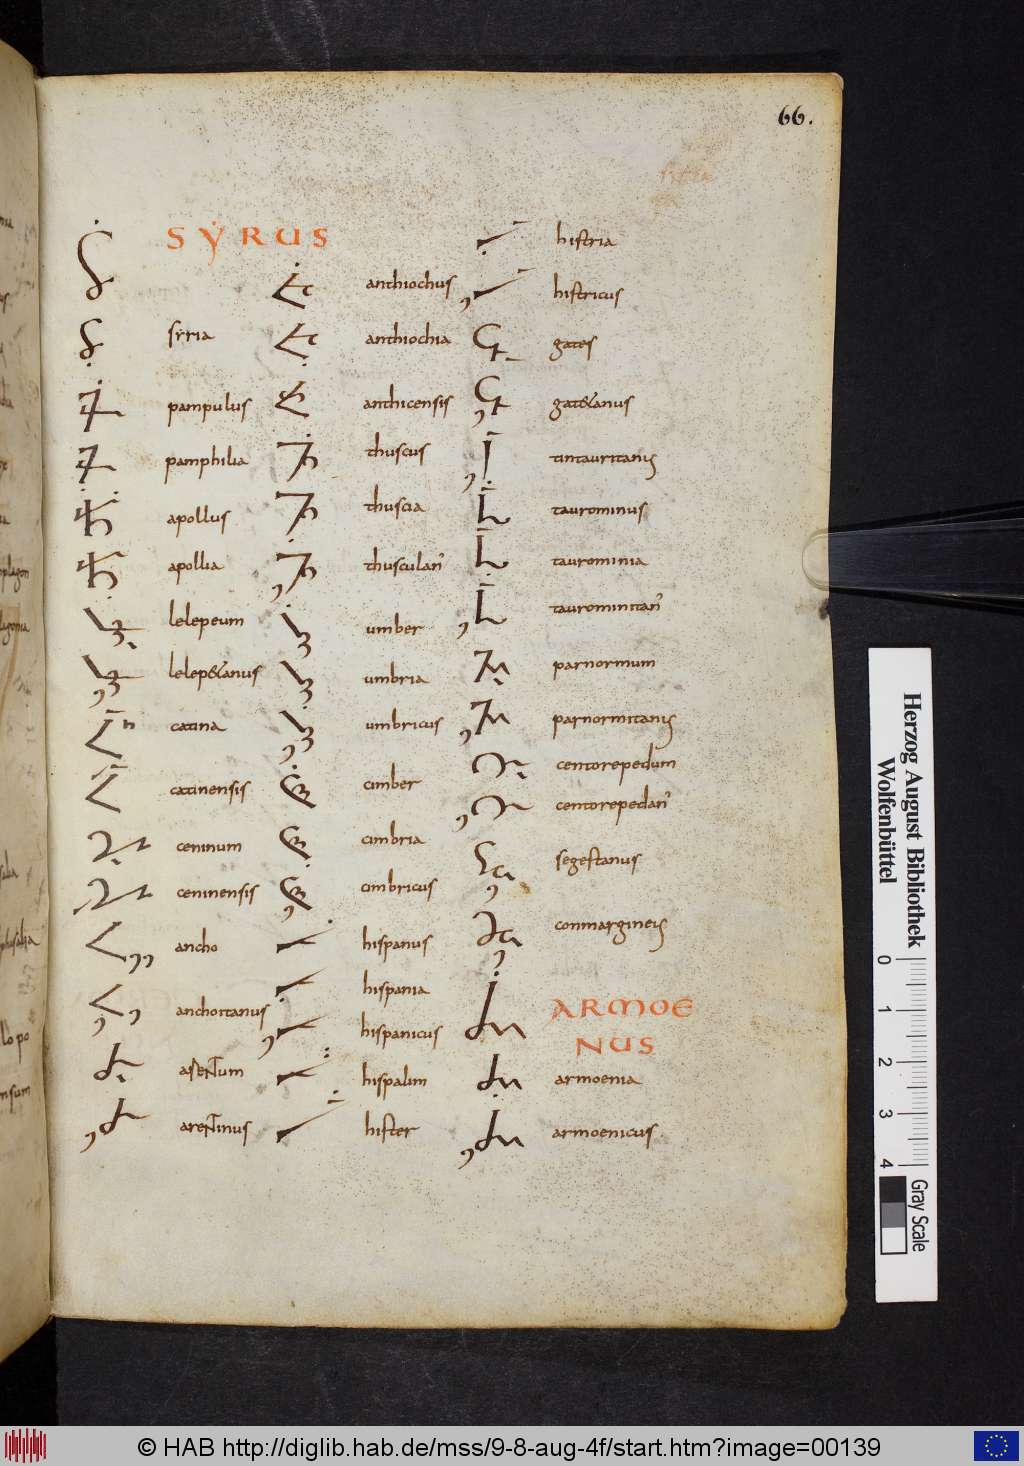 66.
SẎRUS
sẏria
pampulus
pamphilia
apollus
apollia
lelepeum
lelep&anus
catina
catinensis
ceninum
ceninensis
ancho
anchortanus
aseNTum
areNTinus
anthiochus
anthiochia
anthicensis
thuscus
thuscia
thusculan̄
umber
umbria
umbricus
cimber
cimbria
cimbricus
hispanus
hispania
hispanicus
hispalim
hister
histria
histricus
gates
gat&anus
tintauritanis
taurominus
taurominia
taurominitan̄
parnormum
parnormitanis
centorepedum
centorepedan̄
segestanus
conmargineis
ARMOE
NUS
armoenia
armoenicus
Herzog August Bibliothek
Wolfenbüttel
0 1 2 3 4
Gray Scale
© HAB http://diglib.hab.de/mss/9-8-aug-4f/start.htm?image=00139